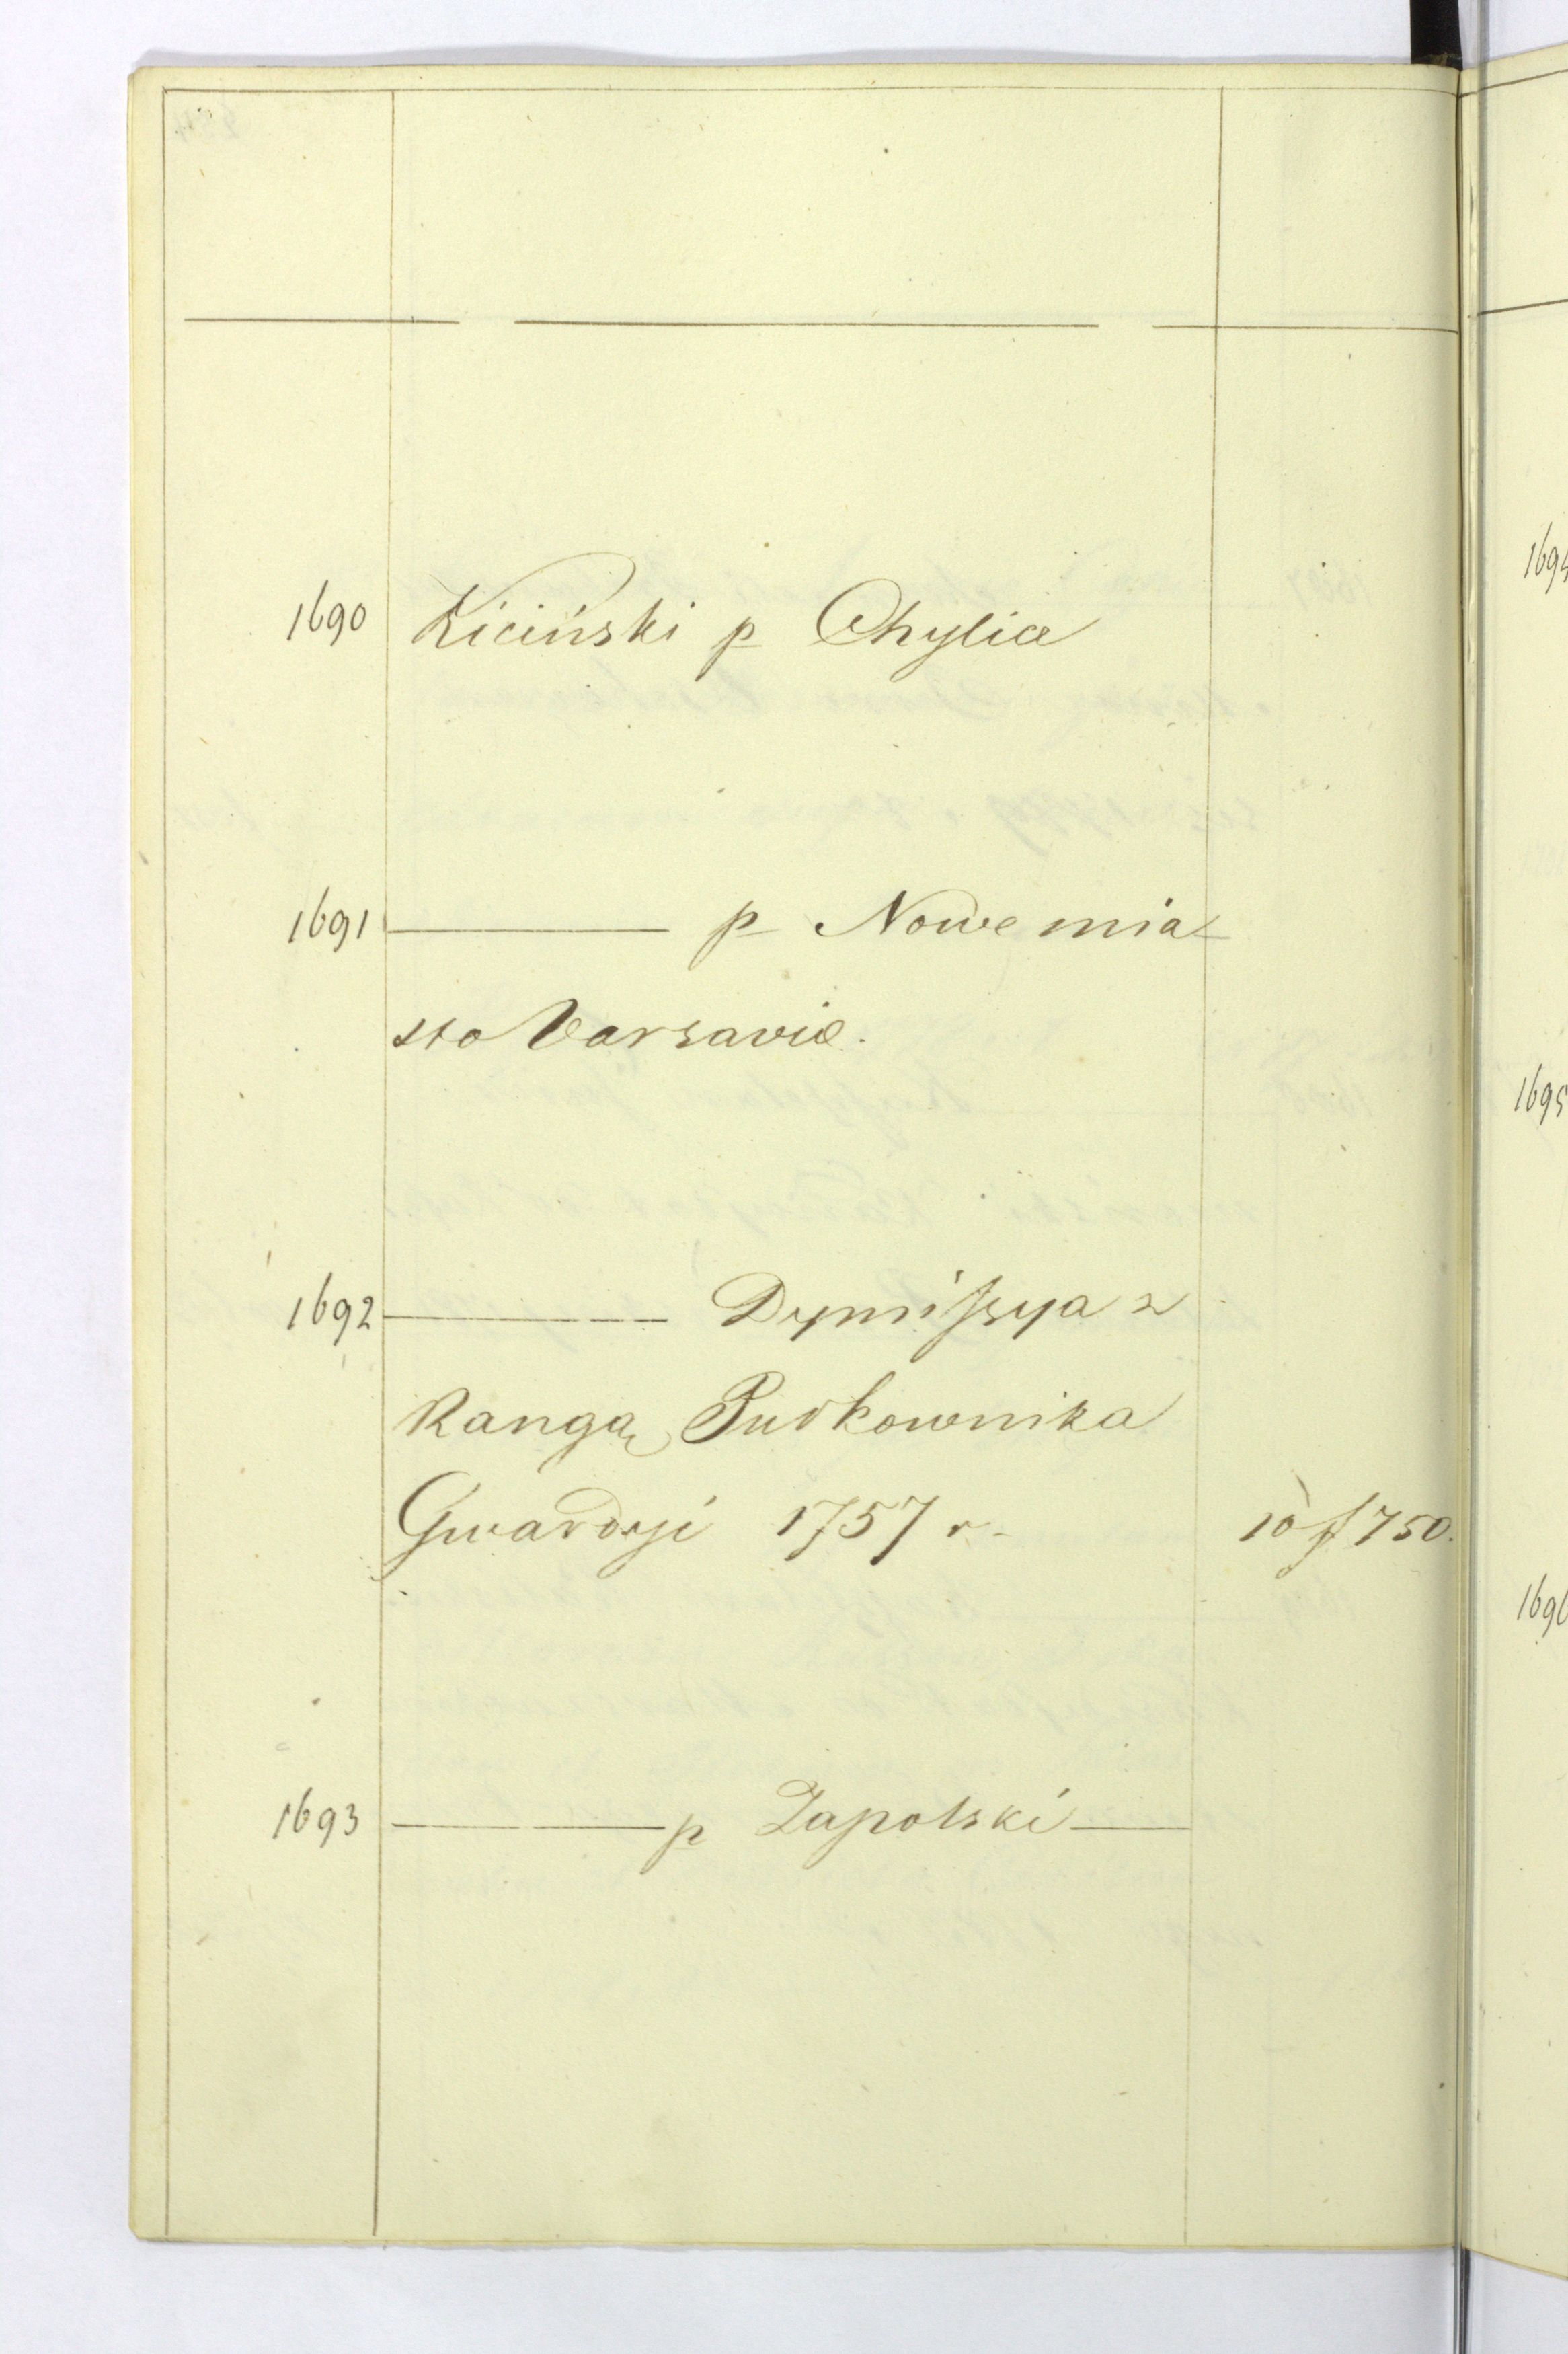 1690 Kiciński p Chylice
1691 ——— p Nowe mia-
sto Varsavie.
1692 ——— Dymissya z
Rangą Pułkownika
Gwardyi 1757 r. 10 f 750.
1693 ——— p Zapolski —
1695